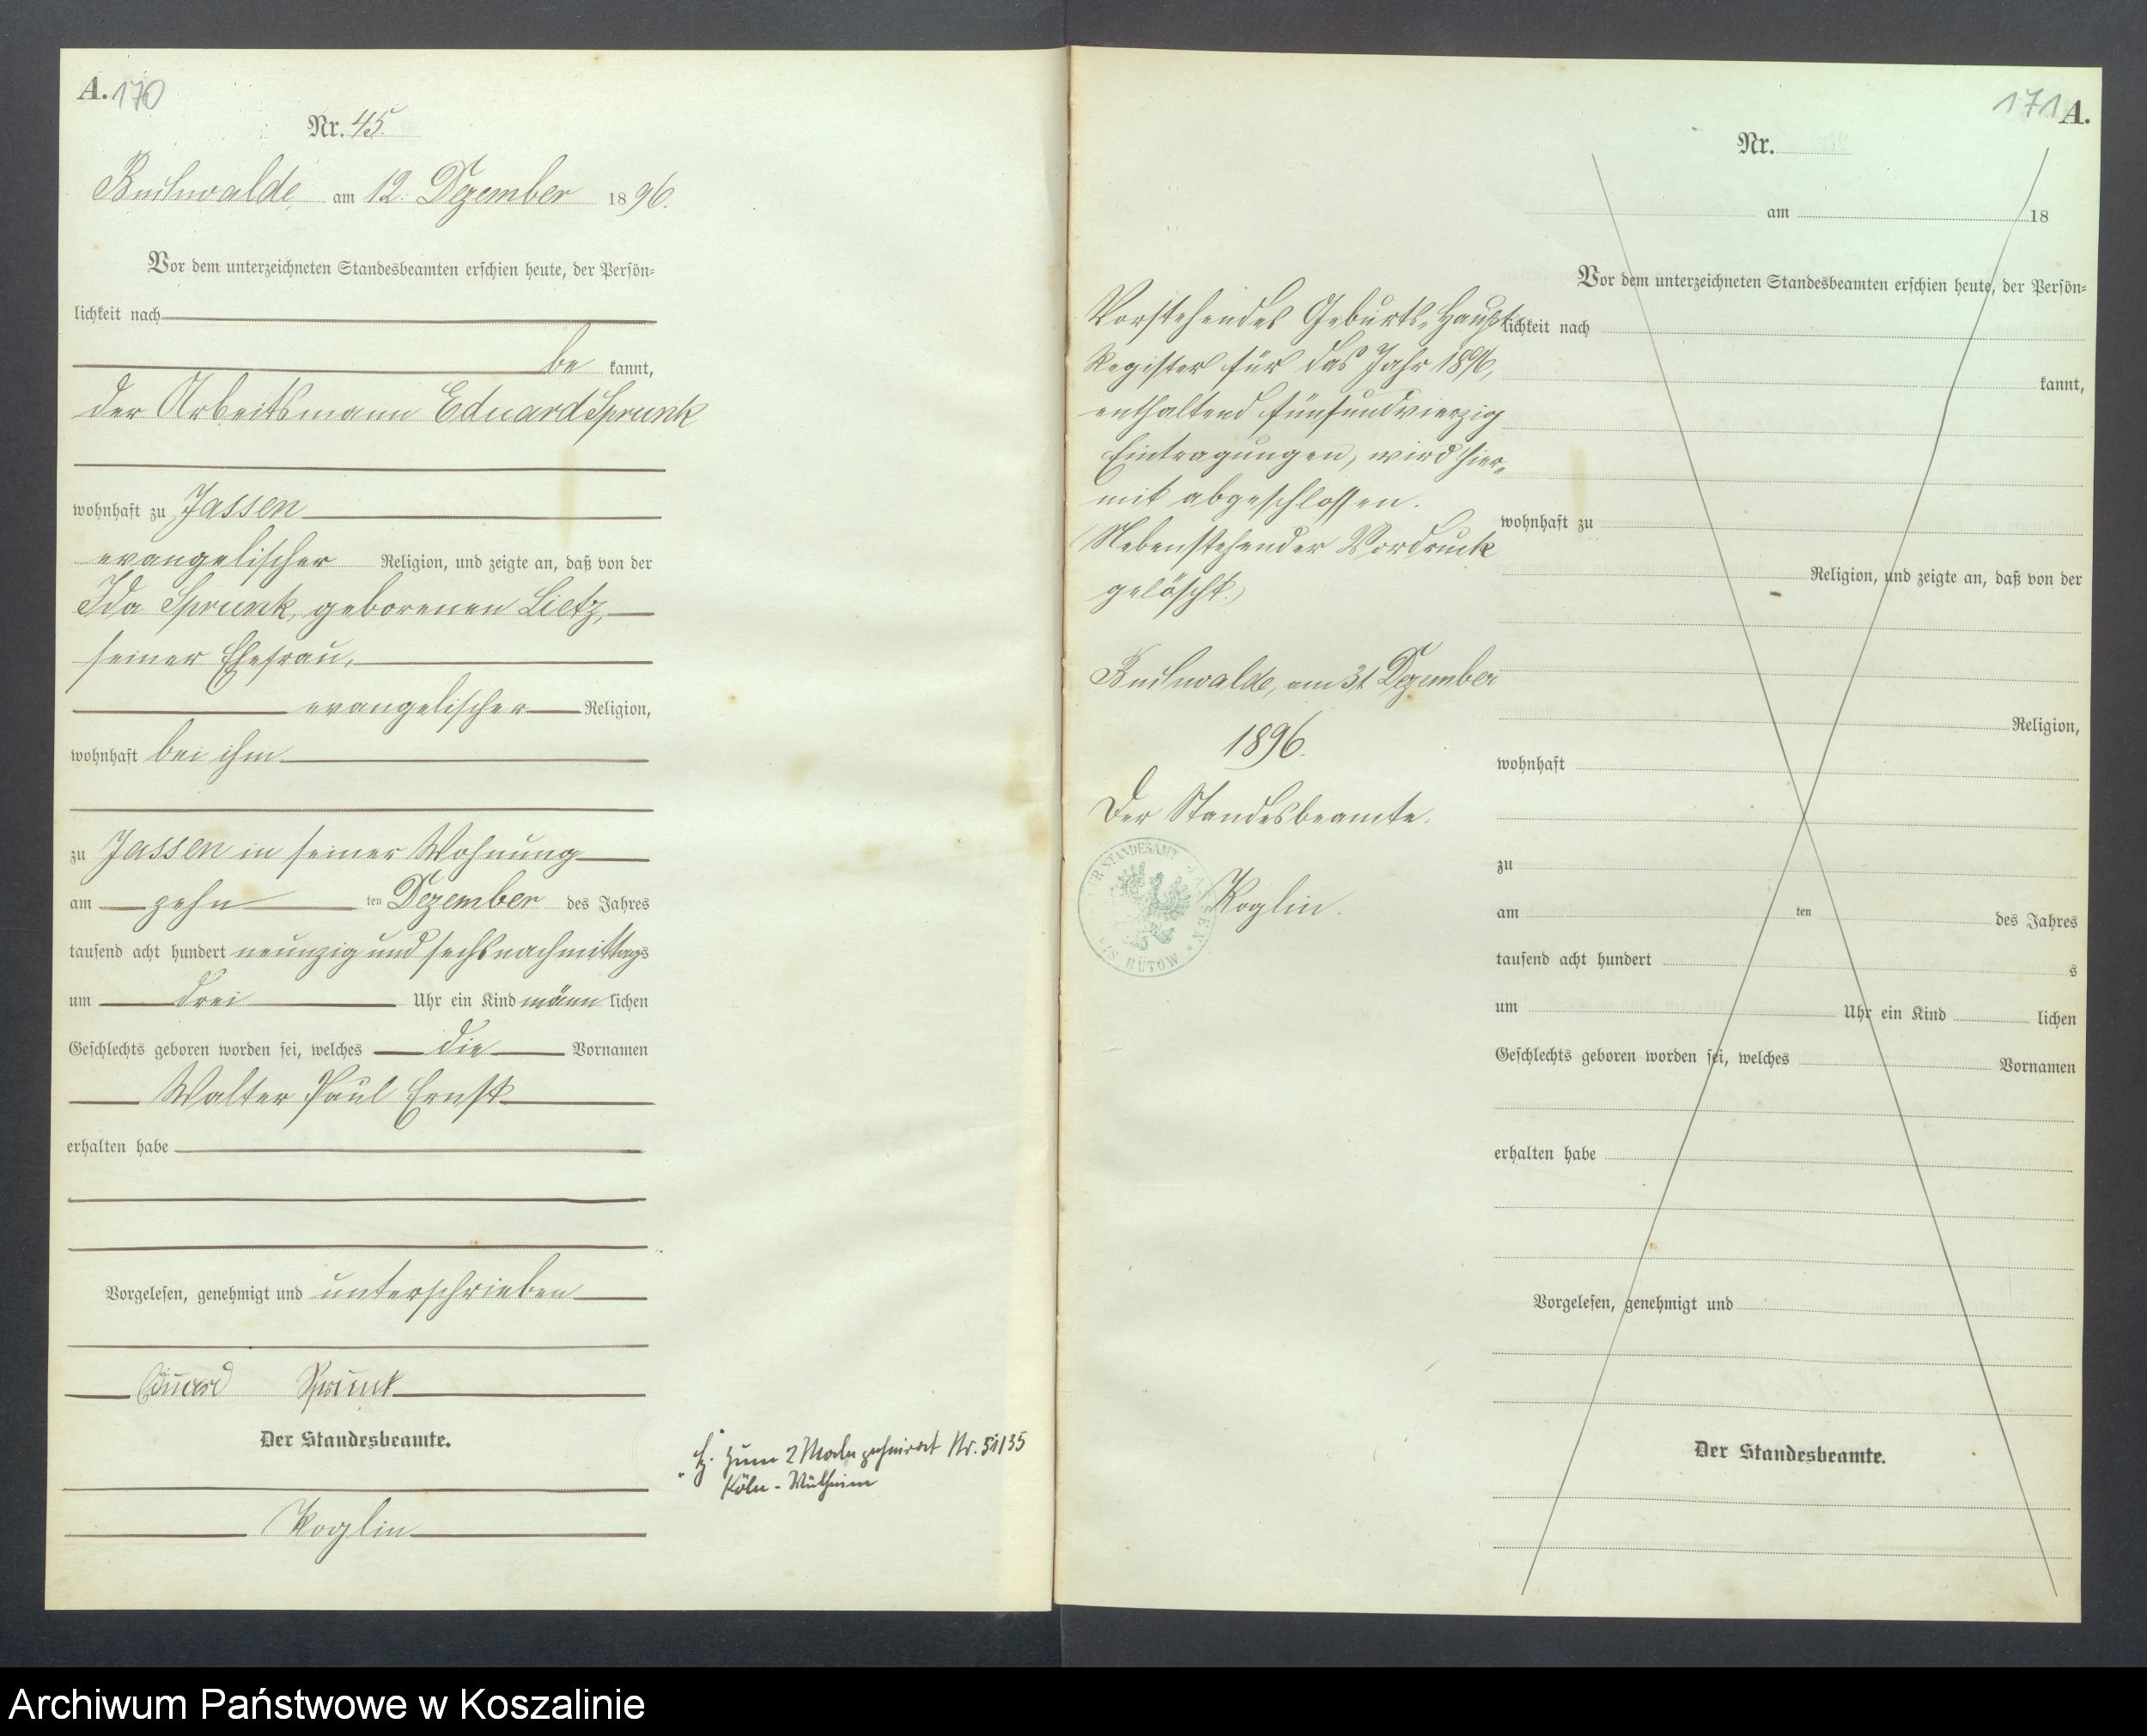 A. 170
Nr. 45.
Buchwalde, am 12. Dezember 1896.
Vor dem unterzeichneten Standesbeamten erschien heute, der Persön-
lichkeit nach
be kannt,
der Arbeitsmann Eduard Sprunk
wohnhaft zu Jassen
evangelischer Religion, und zeigte an, daß von der
Ida Sprunk, geborenen Lietz,
seiner Ehefrau,
evangelischer Religion,
wohnhaft bei ihm
zu Jassen in seiner Wohnung
am zehn ten Dezember des Jahres
tausend acht hundert neunzig und sechs nachmittags
um drei Uhr ein Kind männlichen
Geschlechts geboren worden sei, welches die Vornamen
Walter Paul Ernst
erhalten habe
Vorgelesen, genehmigt und unterschrieben
Eduard Sprunk
Der Standesbeamte.
Koglin
zum 2 Male geheirat Nr. 51/35
Köln - Mülheim
171 A.
Nr.
am 18
Vor dem unterzeichneten Standesbeamten erschien heute, der Persön-
lichkeit nach
kannt,
wohnhaft zu
Religion, und zeigte an, daß von der
Religion,
wohnhaft
zu
am ten des Jahres
tausend acht hundert s
um Uhr ein Kind lichen
Geschlechts geboren worden sei, welches Vornamen
erhalten habe
Vorgelesen, genehmigt und
Der Standesbeamte.
Vorstehendes Geburts-Haupt-
Register für das Jahr 1896,
enthaltend fünfundvierzig
Eintragungen, wird hier-
mit abgeschlossen.
Nebenstehender Vordruck
gelöscht.
Buchwalde, am 31 Dezember
1896.
Der Standesbeamte.
Koglin.
STANDESAMT JASSEN
BÜTOW
Archiwum Państwowe w Koszalinie